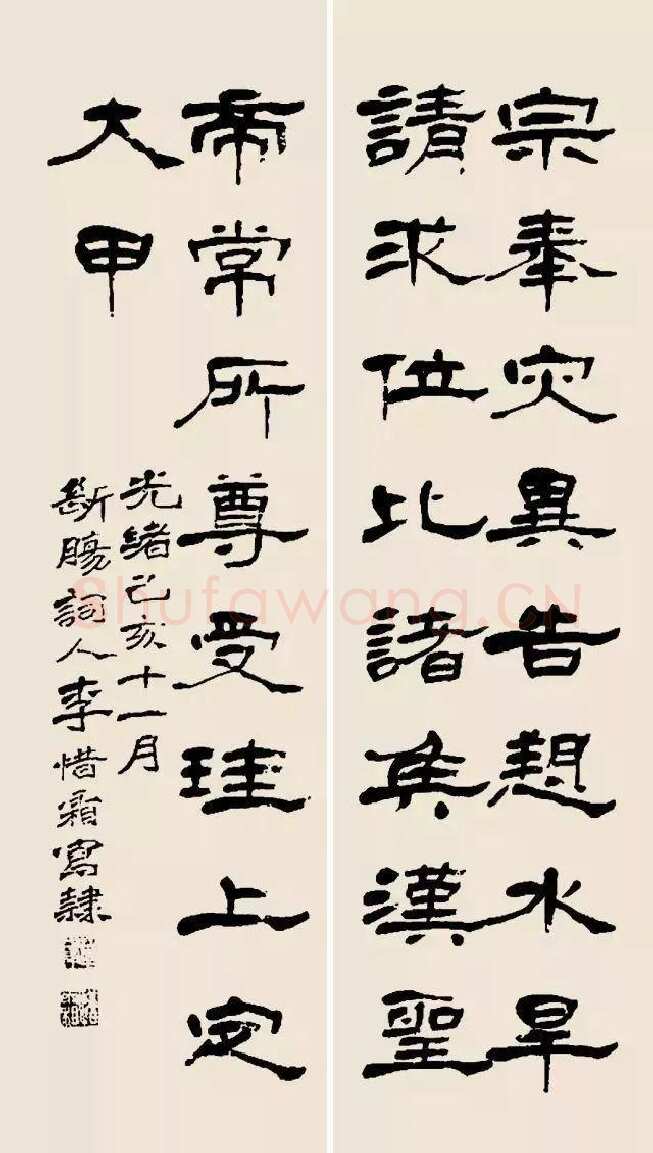 宗奉灾異告愬水旱
請求位比諸矦漢聖
帝常所尊受珪上定
大甲
光緒己亥十一月
斷腸詞人李惜霜寫隸
Shufawang.CN